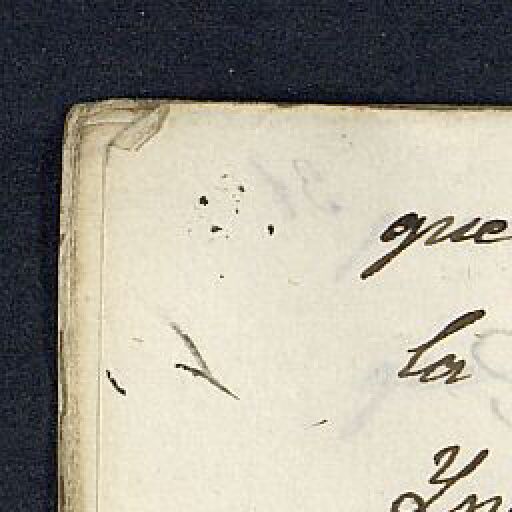 que
la